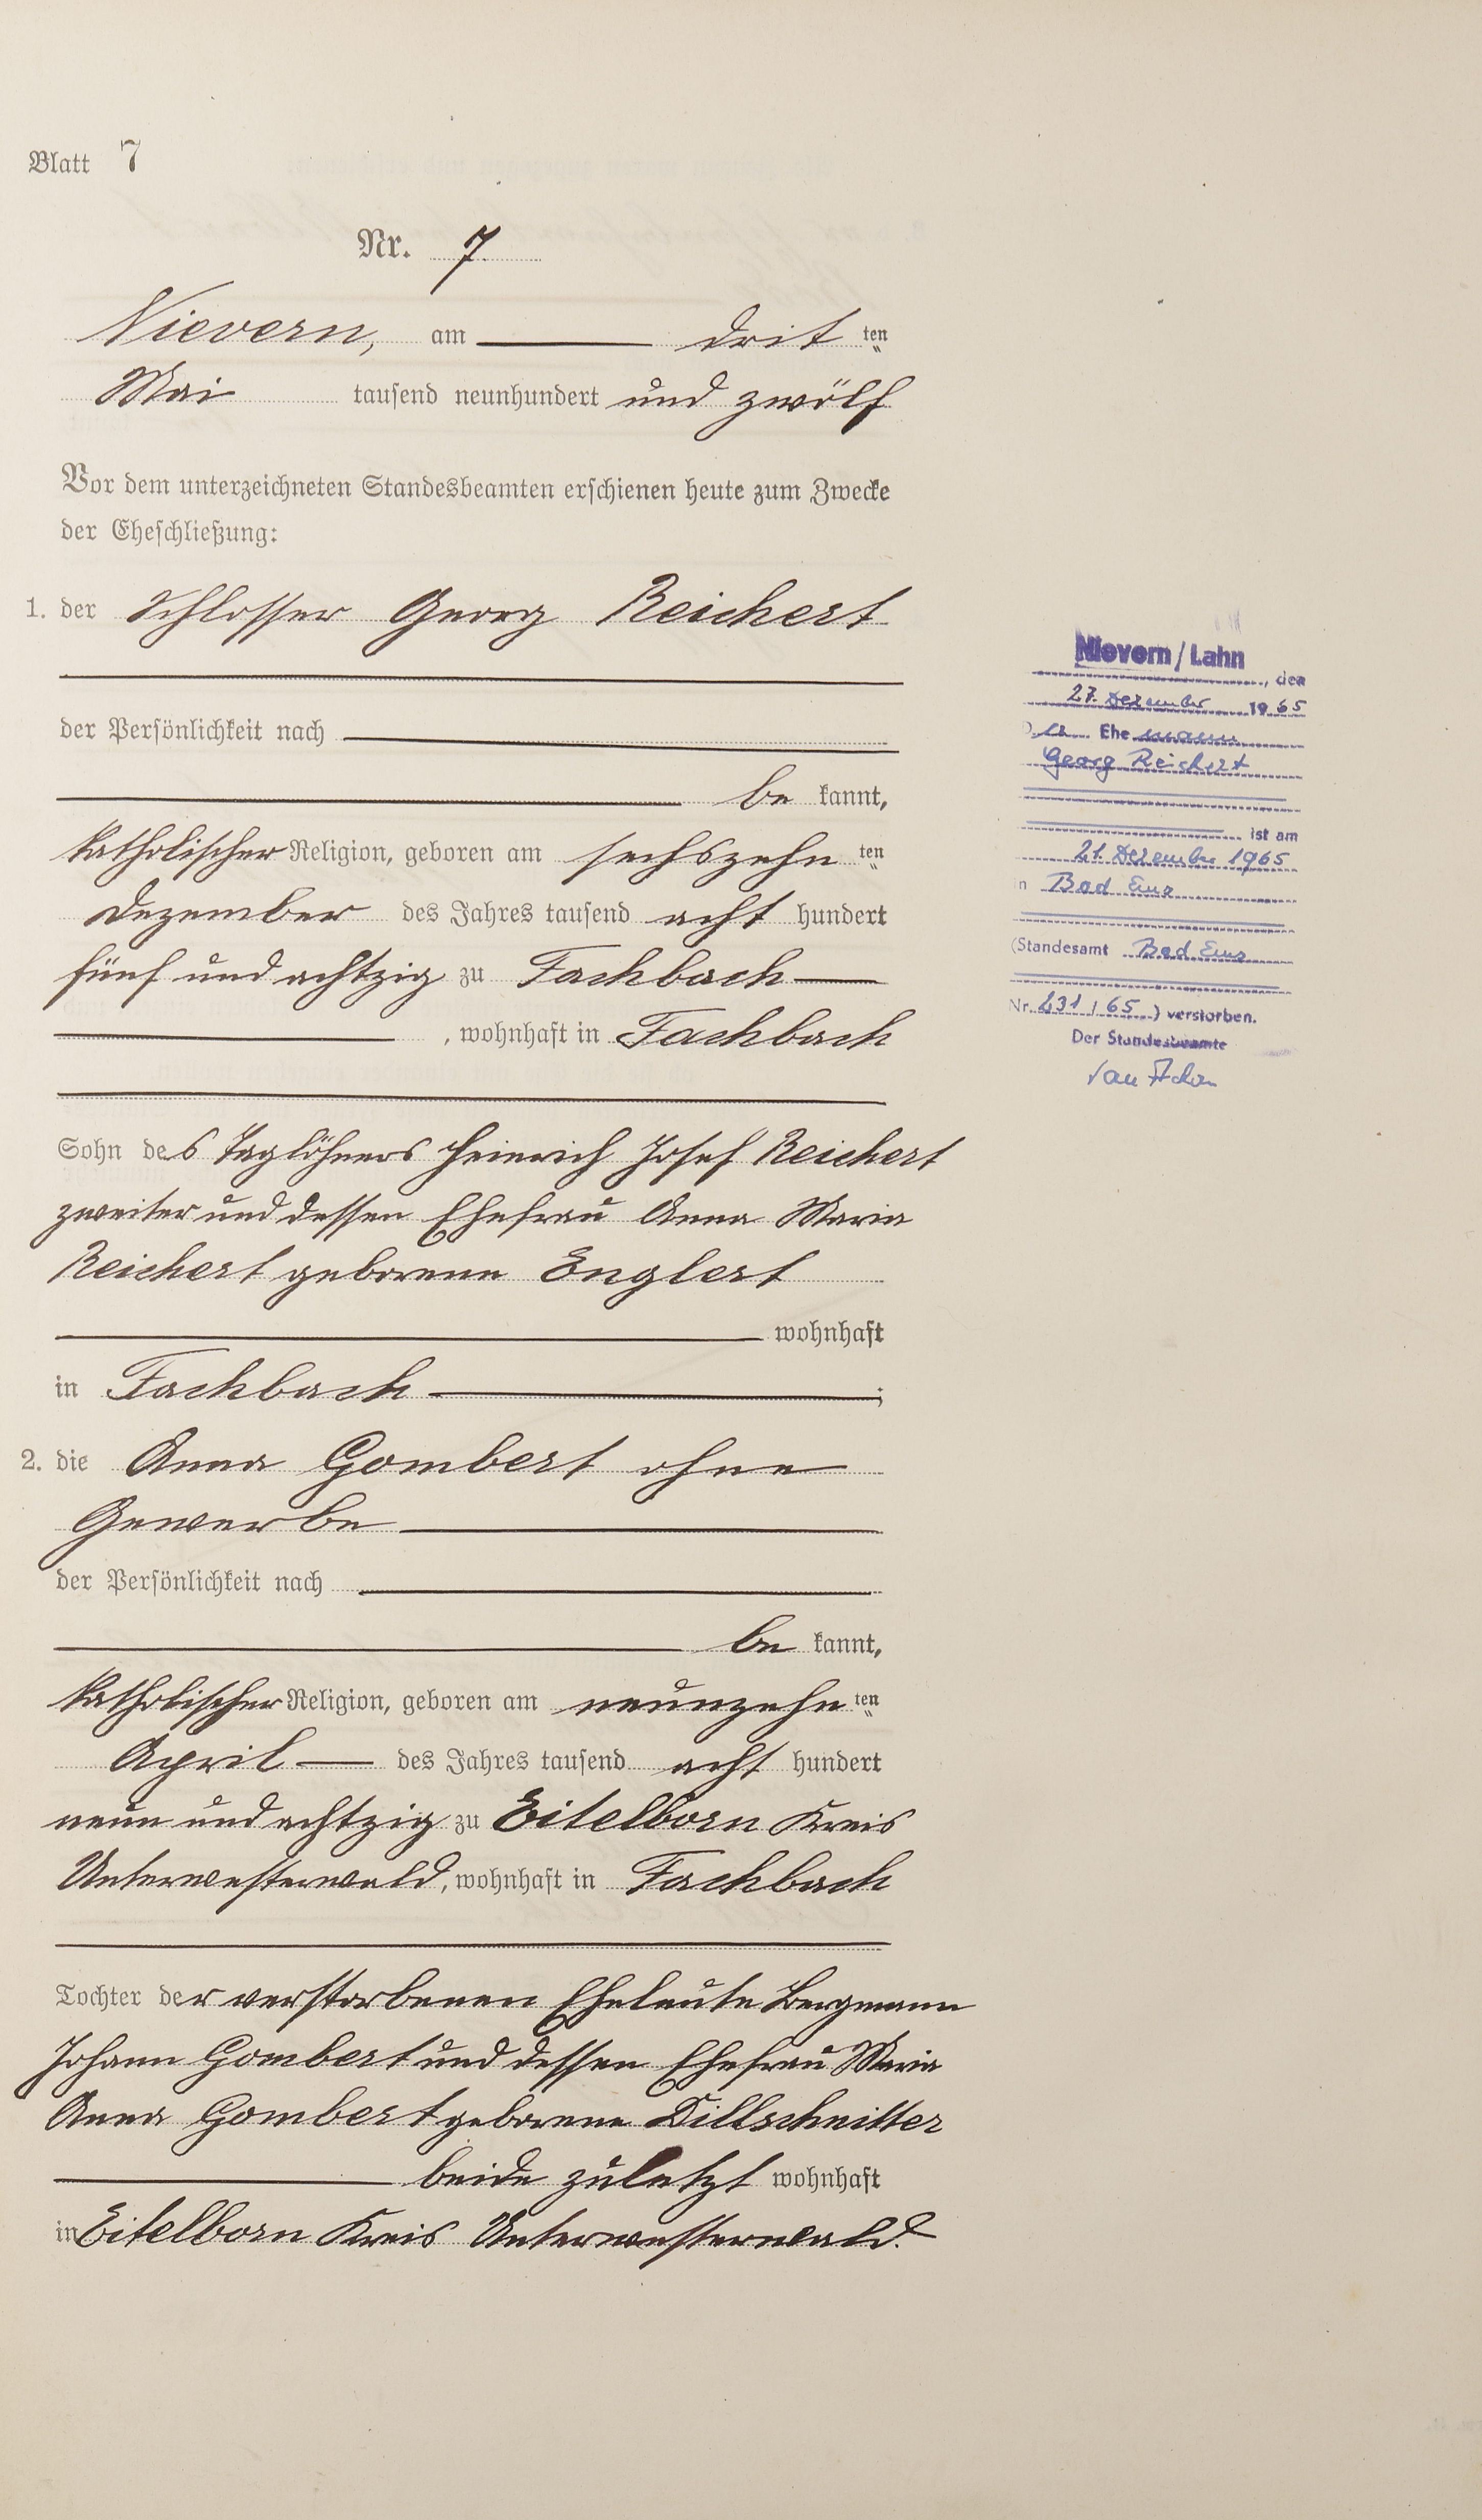 Blatt 7
Nr. 7.
Nievern, am drit ten
Mai tausend neunhundert und zwölf
Vor dem unterzeichneten Standesbeamten erschienen heute zum Zwecke
der Eheschließung:
1. der Schlosser Georg Reichert
der Persönlichkeit nach
be kannt,
katholischer Religion, geboren am sechszehn ten
Dezember des Jahres tausend acht hundert
fünf und achtzig zu Fachbach
, wohnhaft in Fachbach
Sohn des Taglöhners Heinrich Josef Reichert
zweiter und dessen Ehefrau Anna Maria
Reichert geborene Englert
wohnhaft
in Fachbach ;
2. die Anna Gombert ohne
Gewerbe
der Persönlichkeit nach
be kannt,
katholischer Religion, geboren am neunzehn ten
April des Jahres tausend acht hundert
neun und achtzig zu Eitelborn Kreis
Unterwesterwald, wohnhaft in Fachbach
Tochter der verstorbenen Eheleute Bergmann
Johann Gombert und dessen Ehefrau Maria
Anna Gombert geborene Dillschnitter
beide zuletzt wohnhaft
in Eitelborn Kreis Unterwesterwald.
Nievern/Lahn
, den
27. Dezember 1965
Der Ehemann
Georg Reichert
ist am
21. Dezember 1965
in Bad Ems
(Standesamt Bad Ems
Nr. 231 / 65 ) verstorben.
Der Standesbeamte